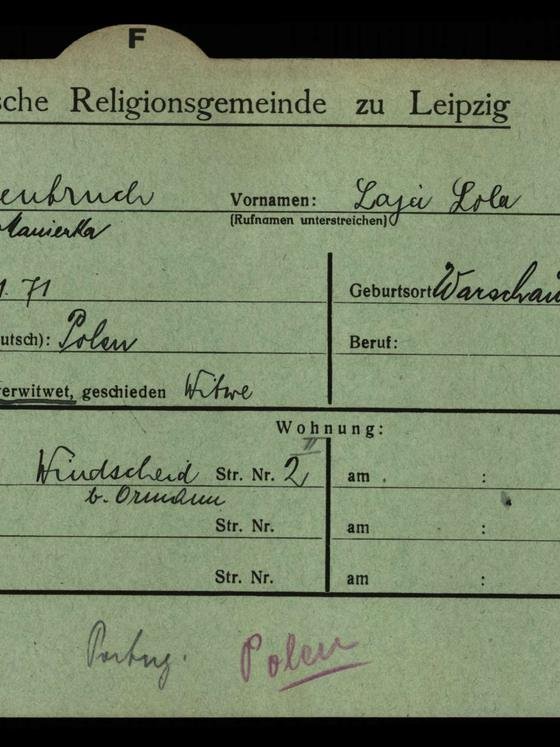 F
sche Religionsgemeinde zu Leipzig
enbruch Vornamen: Laja Lola
(Rufnamen unterstreichen)
Manierka
1. 71 Geburtsort Warschau
utsch): Polen Beruf:
verwitwet, geschieden Witwe
Wohnung:
Windscheid Str. Nr. 2 II am :
b. Ormann
Str. Nr. am :
Str. Nr. am :
Polen